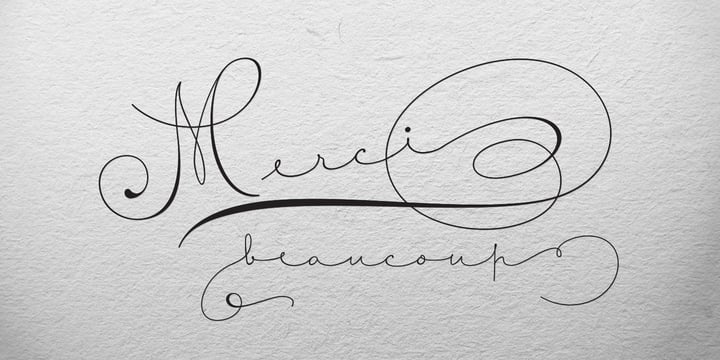 Merci
beaucoup